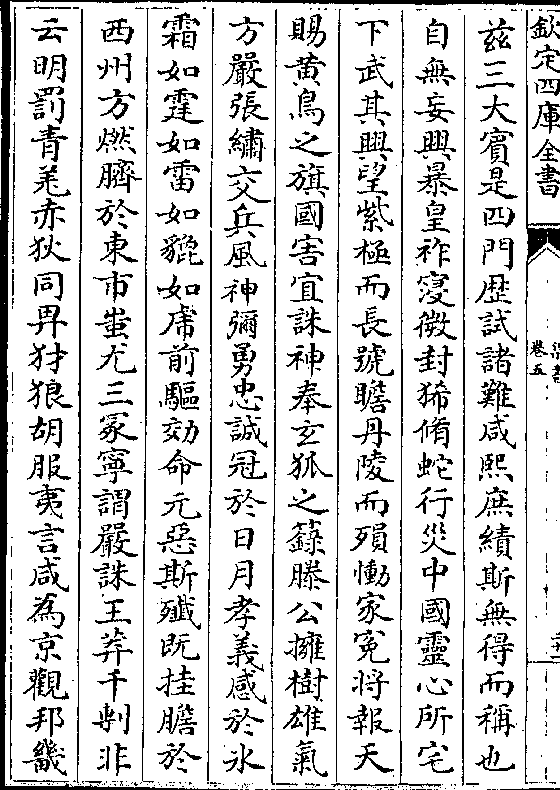 欽定四庫全書
卷五
兹三大賓是四門歴試諸難咸熙庶績斯無得而稱也
自無妄興暴皇祚寖微封狶脩蛇行災中國靈心所宅
下武其興望紫極而長號瞻丹陵而殞慟家冤将報天
賜黄鳥之旗國害宜誅神奉玄狐之籙滕公擁樹雄氣
方嚴張繡交兵風神彌勇忠誠冠於日月孝義感於氷
霜如霆如雷如貔如虎前驅効命元惡斯殱既挂膽於
西州方燃臍於東市蚩尤三冢寧謂嚴誅王莽千剸非
云明罰青羌赤狄同畀犲狼胡服夷言咸為京觀邦畿